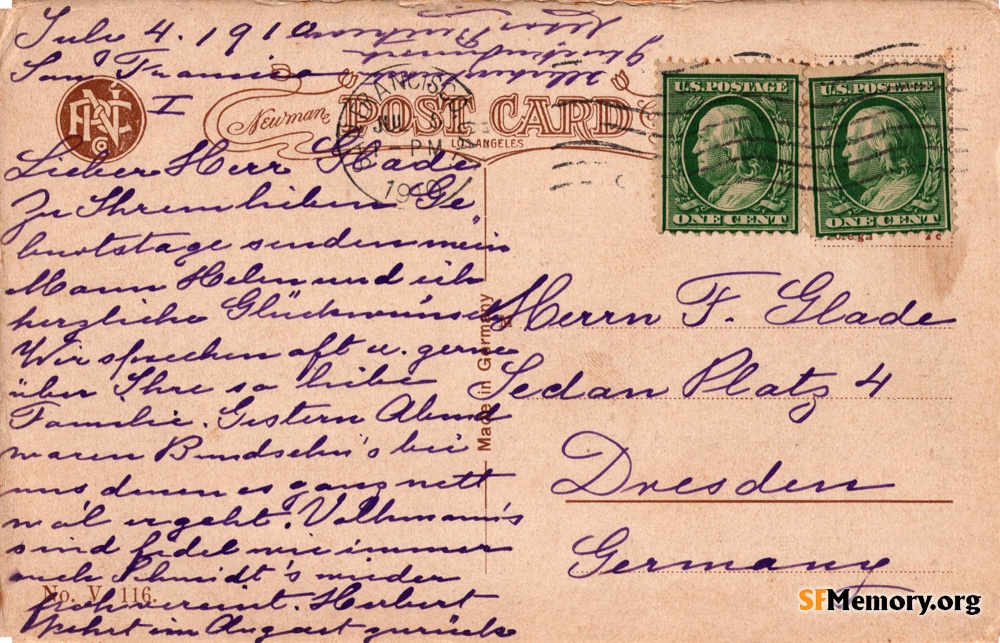 July 4. 1910
San Francisco
I
Newman
POST CARD
LOS ANGELES
FRANCISCO
JUL 5
PM
1910
U.S. POSTAGE
ONE CENT
U.S. POSTAGE
ONE CENT
Foreign 2c
PNC Co
Lieber Herr Glade
Zu Ihrem lieben Ge-
burtstage senden mein
Mann Helen und ich
herzliche Glückwünsche
Wir sprechen oft u. gerne
über Ihre so liebe
Familie. Gestern Abend
waren Bundsehn's bei
uns denen es ganz nett
geht. Volkmann's
sind fidel wie immer
auch Schmidt's wieder
froh vereint. Herbert
kehrt im August zurück
Made in Germany
No. V. 116.
Herrn F. Glade
Sedan Platz 4
Dresden
Germany
SFMemory.org